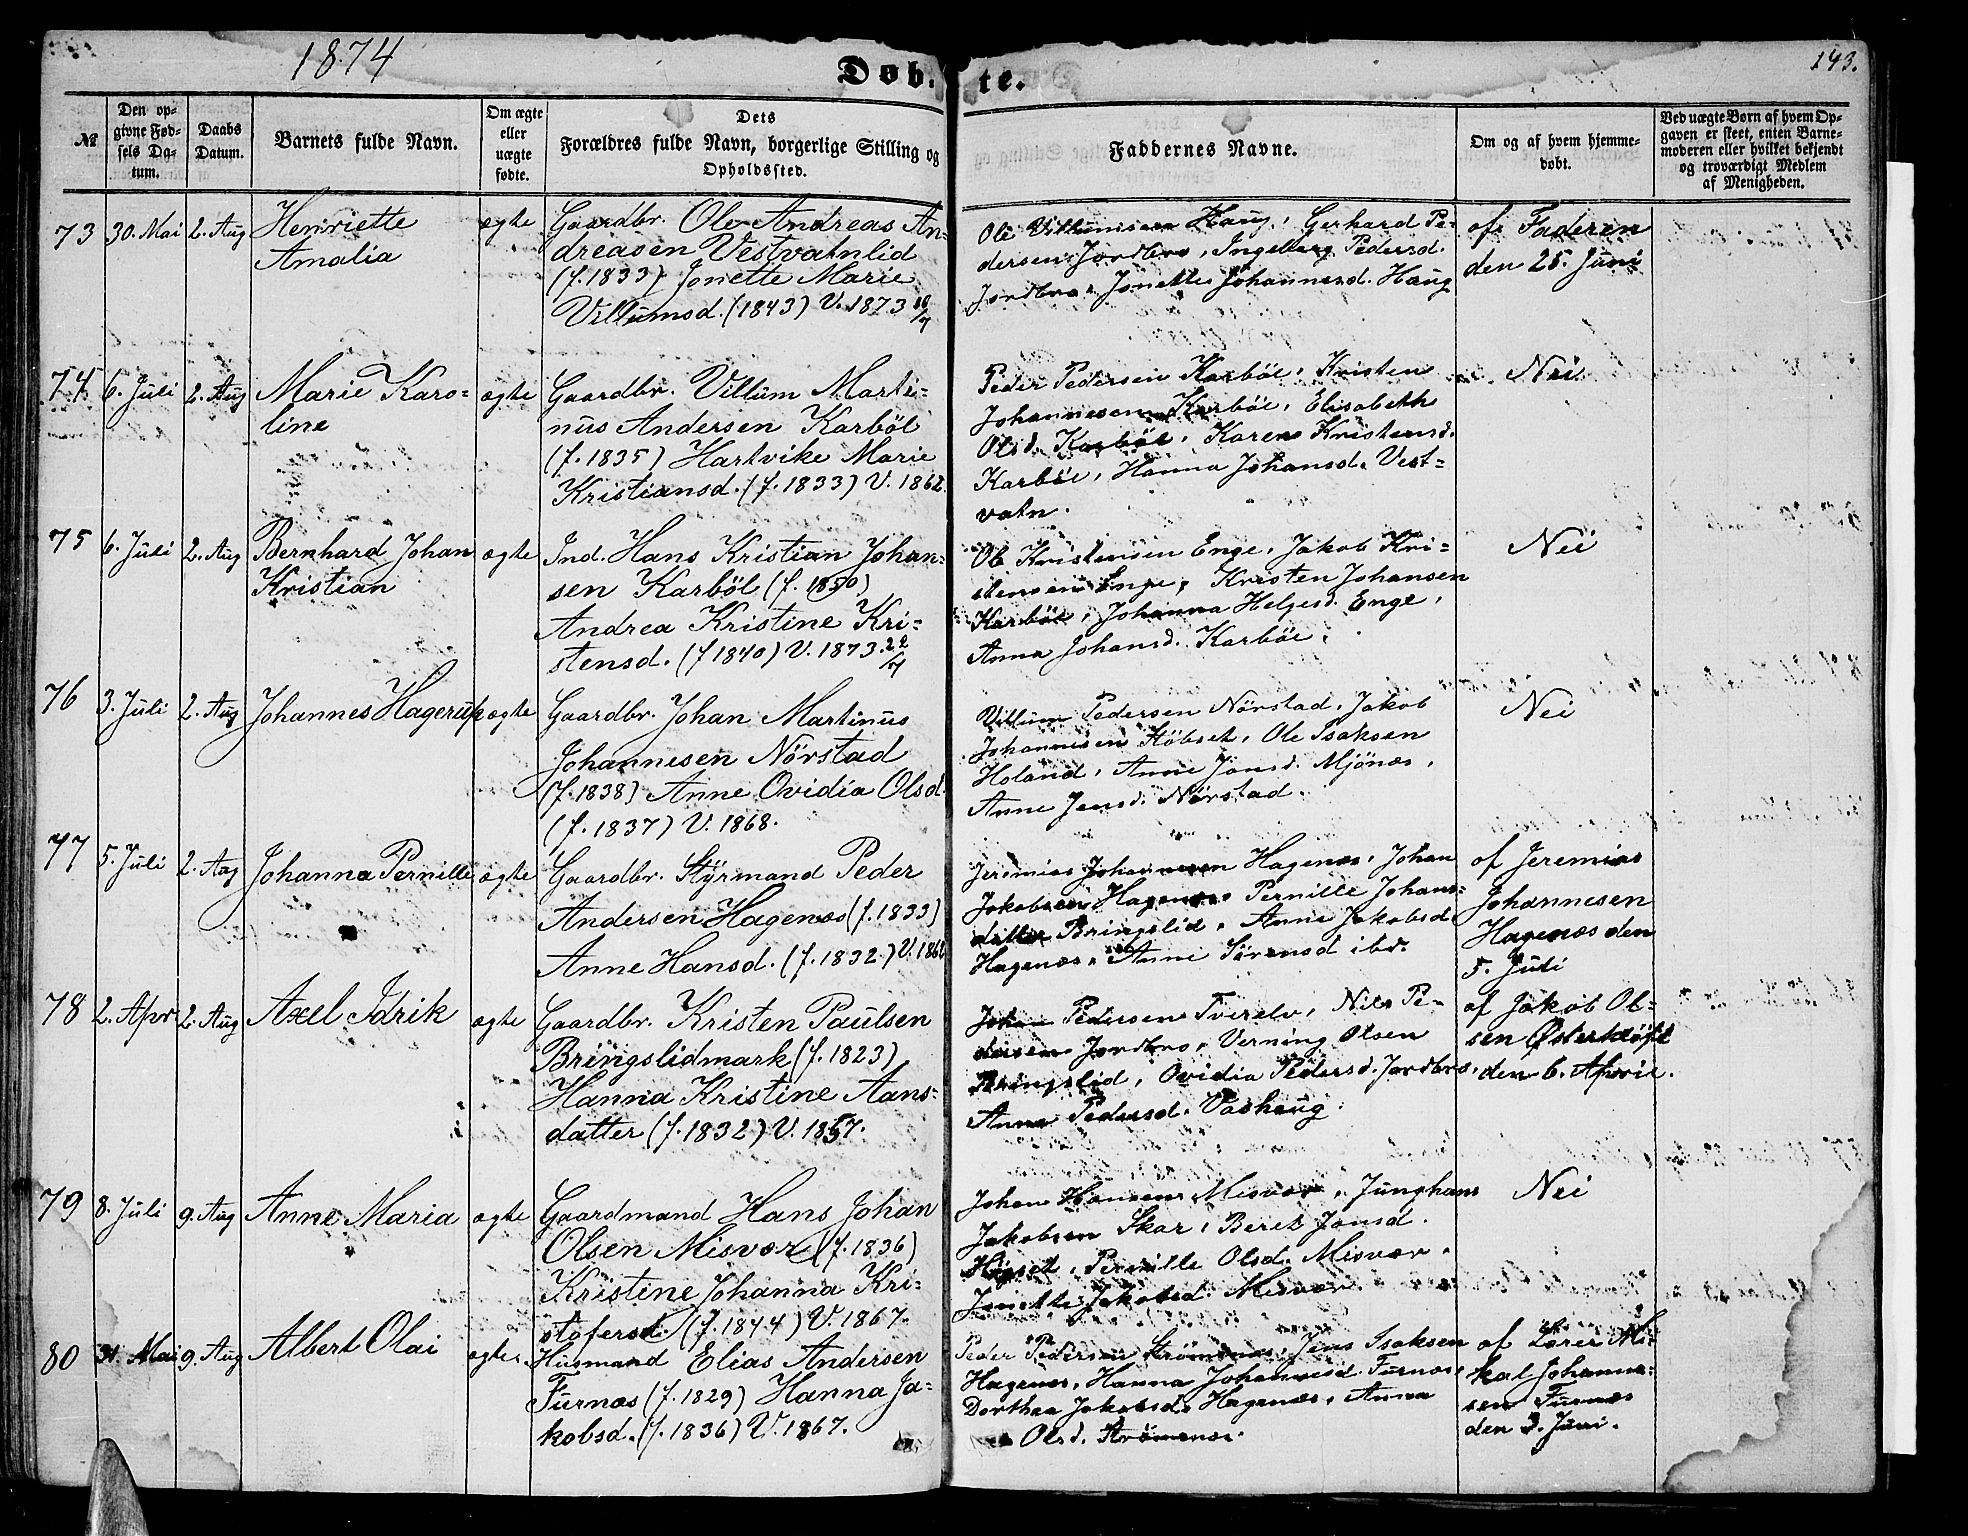 1874
Døb-te.
143.
№
Den op-
givne Fød-
sels Da-
tum.
Daabs
Datum.
Barnets fulde Navn.
Om ægte
eller
uægte
fødte.
Dets
Forældres fulde Navn, borgerlige Stilling og
Opholdssted.
Faddernes Navne.
Om og af hvem hjemme-
døbt.
Ved uægte Børn af hvem Op-
gaven er skeet, enten Barne-
moderen eller hvilket bekjendt
og troværdigt Medlem
af Menigheden.
73 30. Mai 2. Aug Henriette
Amalia
ægte
Gaardbr. Ole Andreas An-
dreasen Vestvatnlid
(f. 1833) Jonette Marie
Villumsd. (1843) V. 1873 10/7
Ole Villumsen Haug, Gerhard Pe-
dersen Jordbro, Ingeborg Pedersd.
Jordbro, Jonette Johannesd. Haug
af Faderen
den 25. Juni
74 6. Juli 2. Aug Marie Karo-
line
ægte
Gaardbr. Villum Marti-
nus Andersen Karbøl
(f. 1835) Hartvike Marie
Kristiansd. (f. 1833) V. 1862.
Peder Pedersen Karbøl, Kristen
Johannesen Karbøl, Elisabeth
Olsd. Karbøl, Karen Kristensd.
Karbøl, Hanna Johansd. Vest-
vatn.
Nei
75 6. Juli 2. Aug Bernhard Johan
Kristian
ægte
Ind. Hans Kristian Johan-
sen Karbøl (f. 1850)
Andrea Kristine Kri-
stensd. (f 1840) V. 1873. 22/7
Ole Kristensen Enge, Jakob Kri-
stensen Enge, Kristen Johansen
Karbøl, Johanna Helgesd. Enge,
Anna Johansd. Karbøl.
Nei
76 3. Juli 2. Aug Johannes Hagerup
ægte
Gaardbr. Johan Martinus
Johannesen Nørstad
(f. 1838) Anne Ovidia Olsd.
(f. 1837) V. 1868.
Villum Pedersen Nørstad, Jakob
Johannesen Støbset, Ole Isaksen
Holand, Anne Jonsd. Mjønes,
Anne Jensd. Nørstad.
Nei
77 5. Juli 2. Aug Johanna Pernille
ægte
Gaardbr. Styrmand Peder
Andersen Hagenæs (f. 1833)
Anne Hansd. (f. 1832) V.
Jeremias Johannesen Hagenæs, Johan
Jakobsen Hagenæs Pernille Johans-
datter Bringslid, Anne Jakobsd.
Hagenæs, Anne Sørensd ibd.
af Jeremias
Johannesen
Hagenæs den
5. Juli
78 2. Apr 2. Aug Axel Idrik
ægte
Gaardbr. Kristen Paulsen
Bringslidmark (f. 1823)
Hanna Kristine Aans-
datter (f. 1832) V. 1857.
Johan Pedersen Tverelv, Nils Pe-
dersen Jordbro, Verning Olsen
Bringslid, Ovidia Pedersd. Jordbro,
Anna Pedersd. Vashaug.
af Jakob Ol-
sen Østerkløft
den 6. April.
79 8. Juli 9. Aug Anne Maria
ægte
Gaardmand Hans Johan
Olsen Misvær (f. 1836)
Kristine Johanna Kri-
stofersd. (f. 1844) V. 1867.
Johan Hansen Misvær, Junghans
Jakobsen Skar, Beret Jonsd.
Høgset, Pernille Olsd. Misvær,
Jonette Jakobsd. Misvær.
Nei
80 31. Mai 9. Aug Albert Olai
ægte
Husmand Elias Andersen
Furnæs (f. 1829) Hanna Ja-
kobsd. (f. 1836) V. 1867.
Peder Pedersen Strømsnæs, Jens Isaksen
Hagenæs, Hanna Johannesd Furnæs,
Dorthea Jakobsd. Hagenæs, Anna
Olsd. Strømsnæs.
af Lærer Mi-
kal Johanne-
sen Furnæs
den 3. Juni.